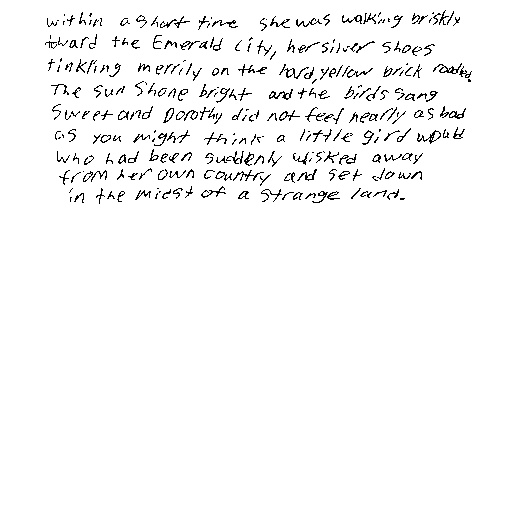 within a short time she was walking briskly
toward the Emerald City, her silver shoes
tinkling merrily on the hard, yellow brick roaded.
The sun shone bright and the birds sang
sweet and Dorothy did not feel nearly as bad
as you might think a little gird would
who had been suddenly wisked away
from her own country and set down
in the midst of a strange land.